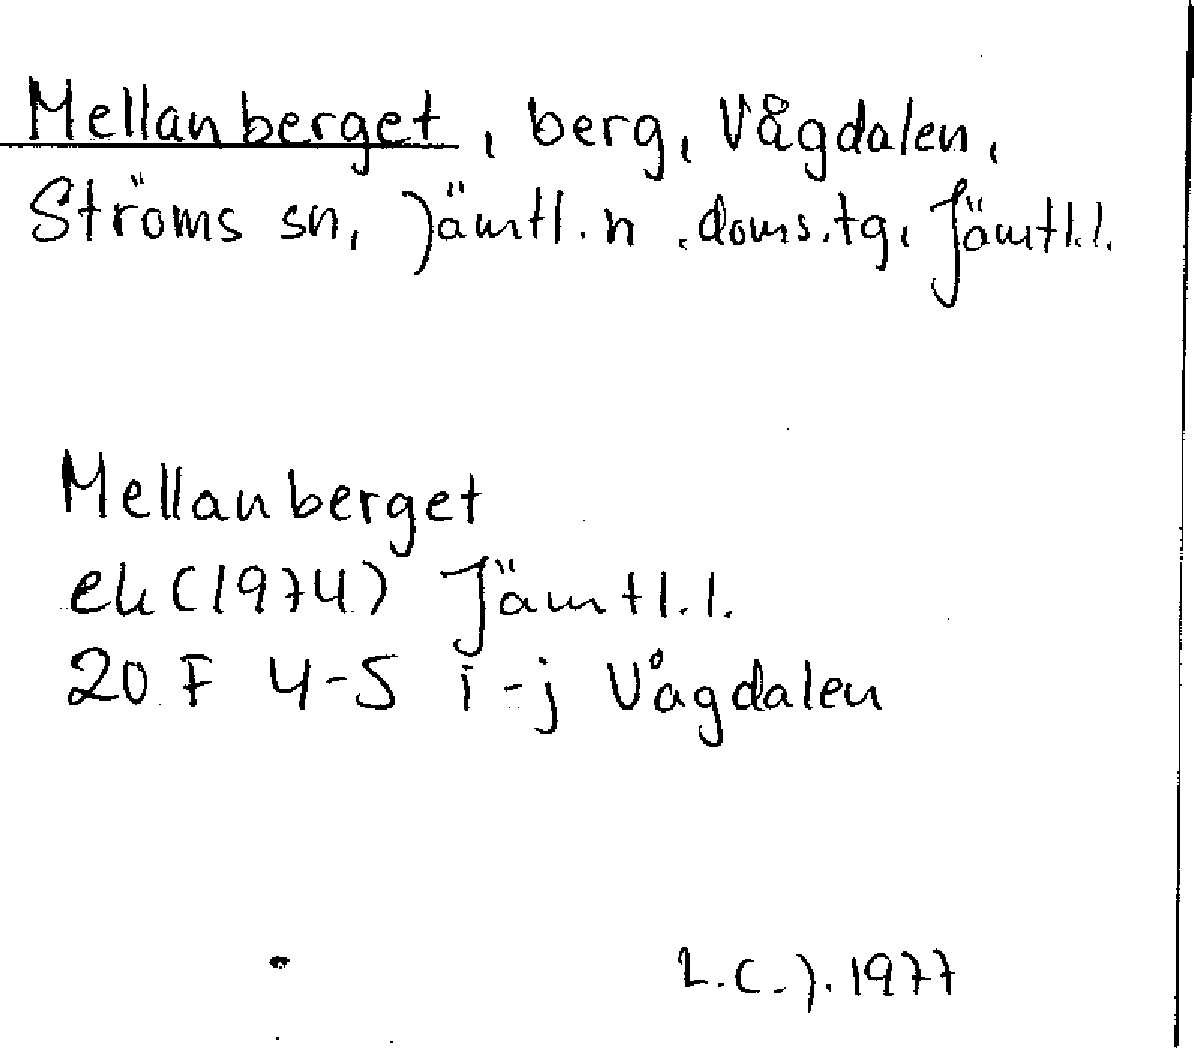 Mellanberget, berg, Vågdalen,
Ströms sn, Jämtl. n. doms.tg, Jämtl.l.
Mellanberget
ek (1974) Jämtl.l.
20 F 4-5 i-j Vågdalen
L.C.J. 1977